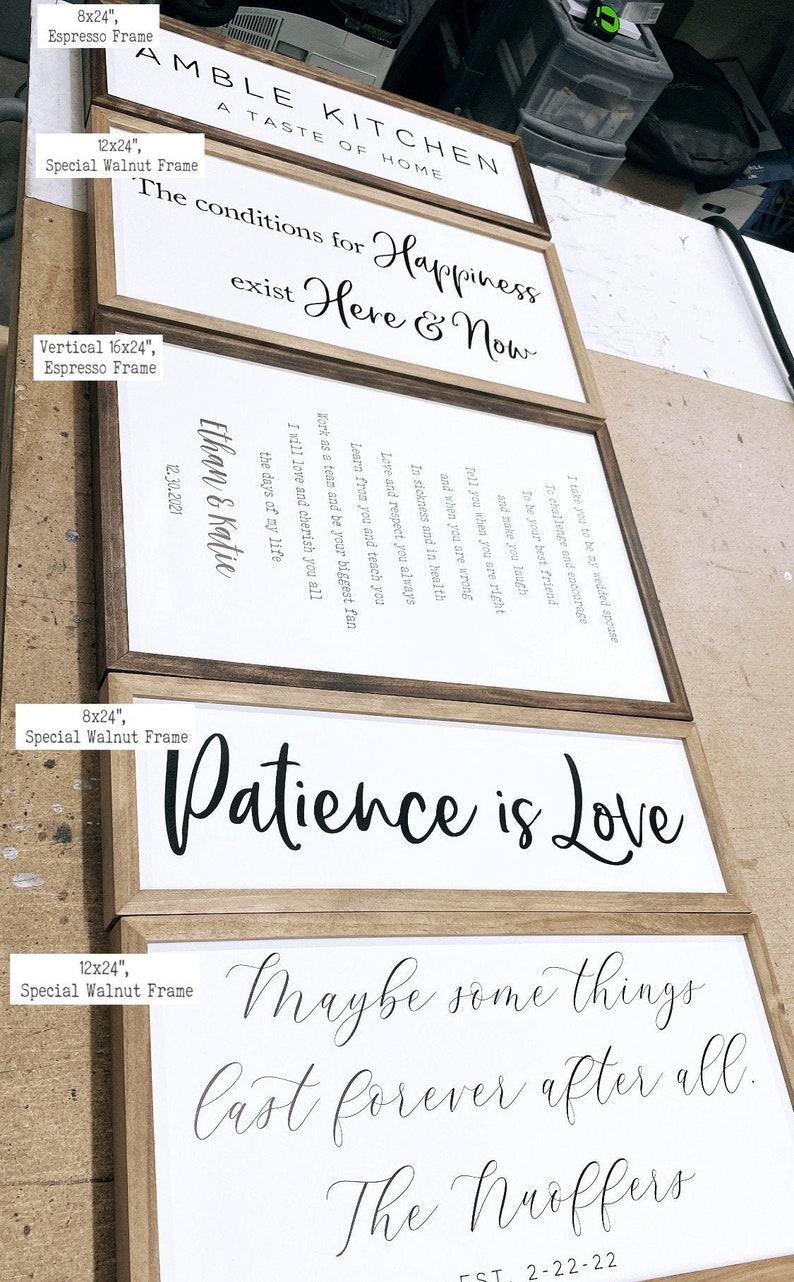 8x24",
Espresso Frame
AMBLE KITCHEN
A TASTE OF HOME
12x24",
Special Walnut Frame
The conditions for Happiness
exist Here & Now
Vertical 16x24",
Espresso Frame
I take you to be my wedded spouse
To challenge and encourage
To be your best friend
and make you laugh
Tell you when you are right
and when you are wrong
In sickness and in health
Love and respect you always
Learn from you and teach you
Work as a team and be your biggest fan
I will love and cherish you all
the days of my life
Ethan & Katie
12.30.2021
8x24",
Special Walnut Frame
Patience is Love
12x24",
Special Walnut Frame
Maybe some things
last forever after all.
The Nuoffers
EST. 2-22-22